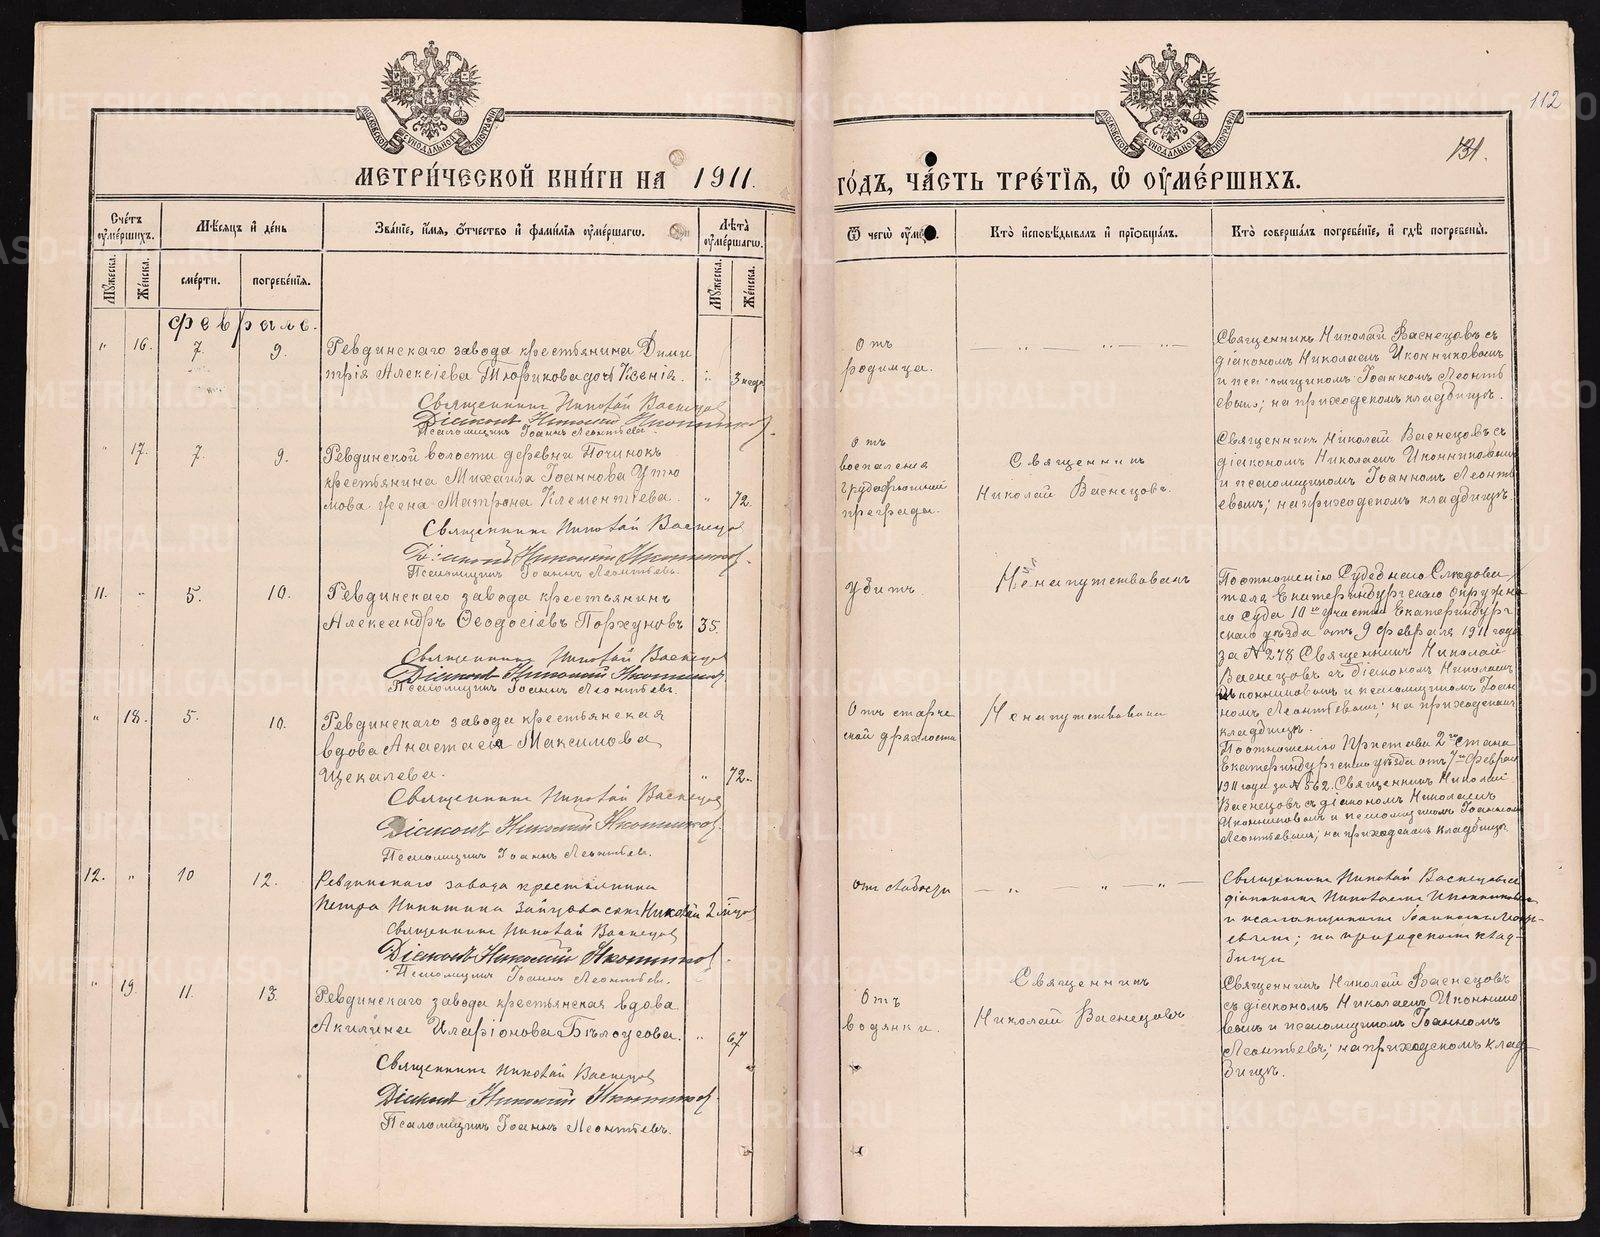 112
131.
МЕТРИ́ЧЕСКОЙ КНИ́ГИ НА 1911.
ГО́ДЪ, ЧА́СТЬ ТРЕ́ТІЯ, Ѿ ОУМЕ́РШИХЪ.
Сче́тъ оуме́ршихъ.
Мѣ́сяцъ и де́нь
Зва́ніе, и́мя, о́тчество и фами́лія оуме́ршагѡ.
Лѣ́та оуме́ршагѡ.
Ѿ чегѡ̀ оу́ме
Кто̀ исповѣ́дывалъ и пріѡбща́лъ.
Кто̀ соверша́лъ погребе́ніе, и гдѣ̀ погребены̀.
Му́жеска. Же́нска.
сме́рти. погребе́нія.
Му́жеска. Же́нска.
февраль.
" 16. 7. 9.
Ревдинскаго завода крестьянина Дими
трія Алексіева Тюрикова дочь Ксенія. " 3 нед.
Священникъ Николай Васнецовъ
Діаконъ Николай Иконниковъ.
Псаломщикъ Іоаннъ Леонтьевъ.
Отъ
родимца.
Священникъ Николай Васнецовъ съ
діакономъ Николаемъ Иконниковымъ
и псаломщикомъ Іоанномъ Леонть
евымъ; на приходскомъ кладбищѣ.
" 17. 7. 9.
Ревдинской волости деревни Починокъ
крестьянина Михаила Іоаннова Утю
мова жена Матрона Клементіева. " 72.
Священникъ Николай Васнецов
Діаконъ Николай Иконников.
Псаломщикъ Іоаннъ Леонтьевъ.
Отъ
воспаленія
грудобрюшной
преграды.
Священникъ
Николай Васнецовъ.
Священникъ Николай Васнецовъ съ
діакономъ Николаемъ Иконниковымъ
и псаломщикомъ Іоанномъ Леонть
евымъ; на приходскомъ кладбищѣ.
11. " 5. 10.
Ревдинскаго завода крестьянинъ
Александръ Ѳеодосіевъ Порхуновъ 35.
Священникъ Николай Васнецов
Діаконъ Николай Иконников.
Псаломщикъ Іоаннъ Леонтьевъ.
Убитъ
Ненапутствованъ
По отношенію Судебнаго Слѣдова
теля Екатеринбургскаго Окружна
го Суда 10го участка Екатеринбург
скаго уѣзда отъ 9 февраля 1911 года
за № 278 Священникъ Николай
Васнецовъ съ діакономъ Николаемъ
Иконниковымъ и псаломщикомъ Іоан
номъ Леонтьевымъ; на приходскомъ
кладбищѣ.
" 18. 5. 10.
Ревдинскаго завода крестьянская
вдова Анастасія Максимова
Щекалева. " 72.
Священникъ Николай Васнецов
Діаконъ Николай Иконников.
Псаломщикъ Іоаннъ Леонтьев.
Отъ старче
ской дряхлости
Ненапутствована
По отношенію Пристава 2го Стана
Екатеринбургскаго уѣзда отъ 7го феврал
1911 года за № 562. Священникъ Николай
Васнецовъ съ діакономъ Николаемъ
Иконниковымъ и псаломщикомъ Іоанномъ
Леонтьевымъ; на приходскомъ кладбищѣ.
12. " 10 12.
Ревдинскаго завода крестьянина
Петра Никитина Зайцова сынъ Николай 2 мѣсяц
Священникъ Николай Васнецов
Діаконъ Николай Иконников.
Псаломщикъ Іоаннъ Леонтьевъ.
отъ слабости
Священникъ Николай Васнецовъ съ
діакономъ Николаемъ Иконниковым
и псаломщикомъ Іоанномъ Леонть-
евымъ; на приходскомъ клад-
бищѣ
" 19. 11. 13.
Ревдинскаго завода крестьянская вдова
Акилина Иларіонова Бѣлоусова. " 67
Священникъ Николай Васнецов
Діаконъ Николай Иконников.
Псаломщикъ Іоаннъ Леонтьевъ.
Отъ
водянки.
Священникъ
Николай Васнецовъ
Священникъ Николай Васнецовъ
съ діакономъ Николаемъ Иконнико
вымъ и псаломщикомъ Іоанномъ
Леонтьевъ; на приходскомъ клад
бищѣ.